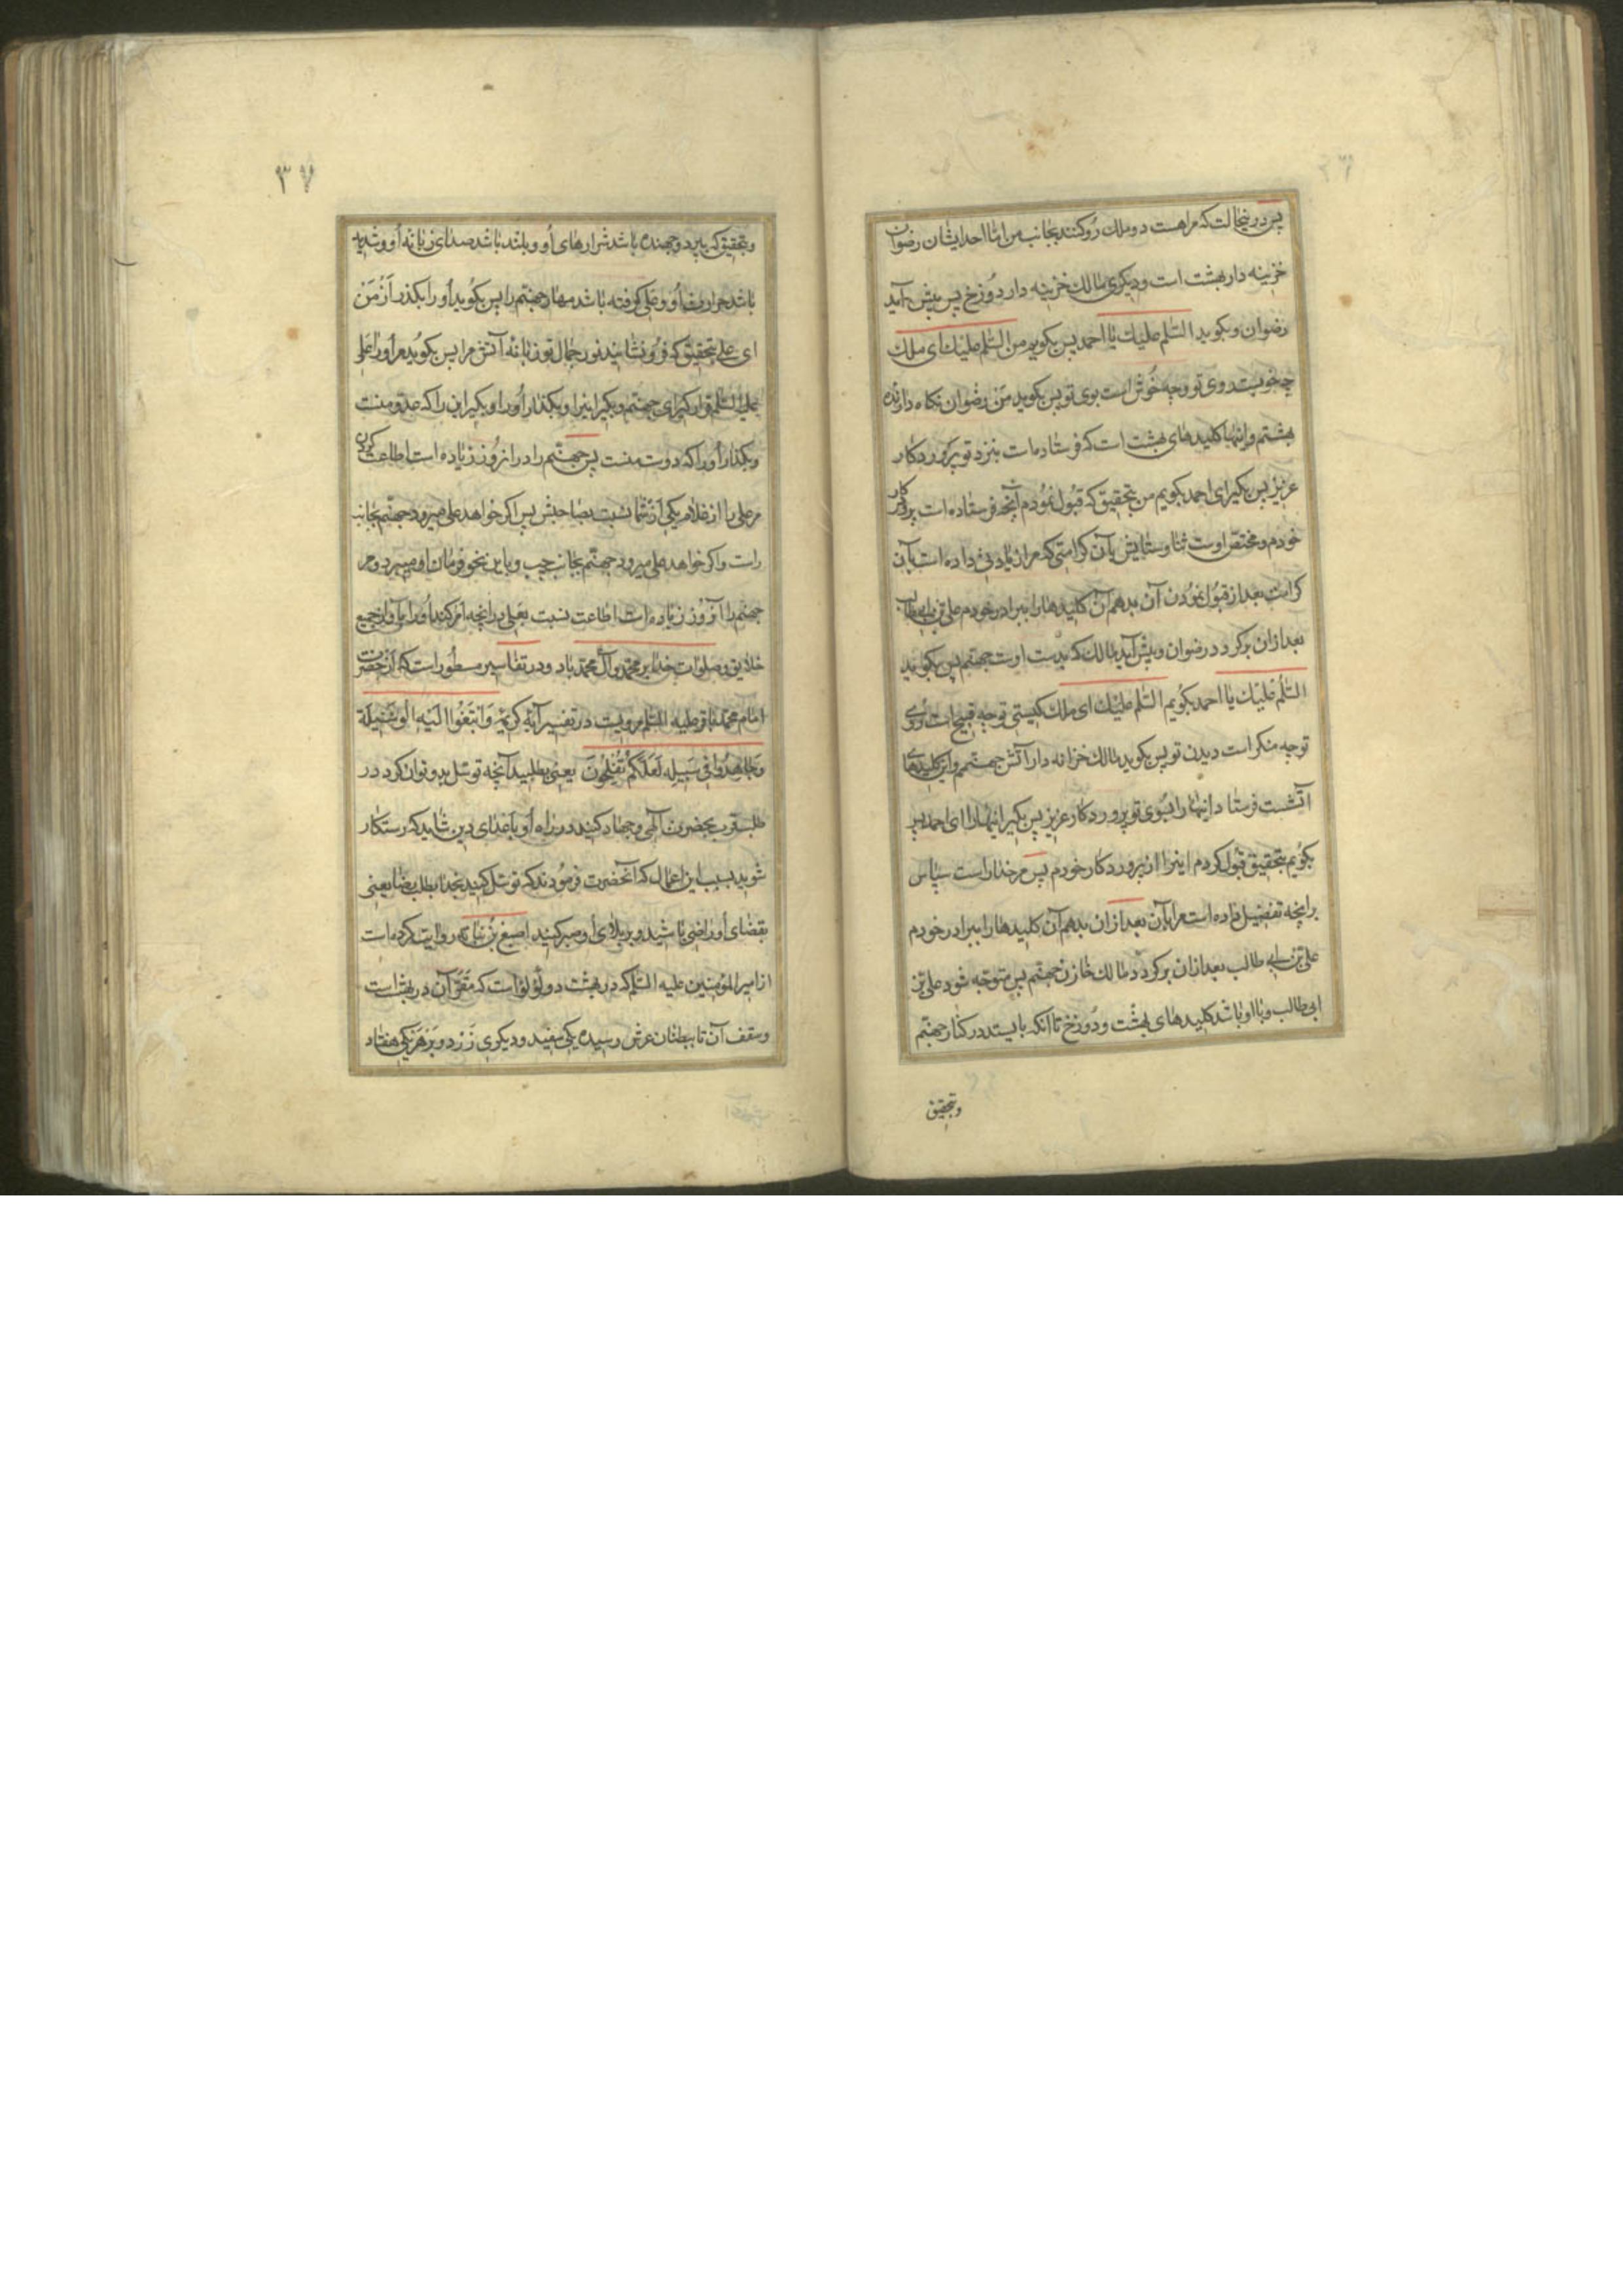 پس در ینحالت که مراهست دو ملک رو کنند بجانب من اما احد ایشان رضوان
خزینه دار بهشت است و دیکری مالک خزینه دار دوزخ پس پیش آید
رضوان و بکوید السّلم علیك یا احمد پس بکویم من السّلم علیك ای ملك
چه خوبست روی تو و چه خوش است بوی تو پس بکوید من رضوان نکاه دارنده
بهشتم و اینها کلیدهای بهشت است که فرستاده است بنزد تو پروردکار
عزیز پس بکیر ای احمد بکویم من بتحقیق که قبول نمودم آنچه فرستاده است پروردکار
خودم و مختص اوست ثنا و ستایش بآن کرامتی که مرا زیادتی داده است بآن
کرامت بعد از قبول نمودن آن بدهم آن کلیدها را ببرادر خودم علی بن ابی طالب
بعد ازان برکردد رضوان و پیش آید مالك که بدست اوست جهنّم پس بکوید
السّلم علیك یا احمد بکویم السّلم علیك ای ملك کیستی تو چه قبیح است روی
تو چه منکر است دیدن تو پس بکوید مالك خزانه دار آتش جهنّمم و این کلیدهای
آتشست فرستاد اینها را بسوی تو پروردکار عزیز پس بکیر اینها را ای احمد پس
بکویم بتحقیق قبول کردم اینرا از پروردکار خودم پس مر خدا راست سپاس
برانچه تفضیل داده است مرا بآن بعد ازان بدهم آن کلیدها را ببرادر خودم
علی بن ابی طالب بعد ازان برکردد مالك خازن جهنّم پس متوجّه شود علی بن
ابی طالب و با او باشد کلیدهای بهشت و دوزخ تا آنکه بایستد در کنار جهنّم
و بتحقیق
٣٧
و بتحقیق که بپرد و جهنده باشد شرارهای او و بلند باشد صدای زبانه او و شدید
باشد حرارت او و علی کرفته باشد مهار جهنّم را پس بکوید او را بکذر از من
ای علی بتحقیق که فرو نشانید نور جمال تو زبانه آتش مرا پس بکوید مر او را علی
علیه السّلم قرار کیر ای جهنّم و بکیر اینرا و بکذار او را و بکیر این را که عدو منست
و بکذار او را که دوست منست پس جهنّم را در انروز زیاده است اطاعت کردن
مر علی را از غلام یکی از شما نسبت بصاحبش پس اکر خواهد علی میرود جهنّم بجانب
راست و اکر خواهد علی میرود جهنّم بجانب چپ و باین نحو فرمان او میبرد و مر
جهنّم را آنروز زیاده است اطاعت نسبت بعلی درانچه امر کند او را بآن از جمیع
خلایق و صلوات خدا بر محمّد و آل محمّد باد و در تفاسیر مسطور است که از حضرت
امام محمّد باقر علیه السّلم مرویست در تفسیر آیۀ کریمۀ وَابْتَغُوا اِلَیْهِ الْوَسیلَةَ
وَجاهِدُوا فی سَبیلِه لَعَلَّکُمْ تُفْلِحُونَ یعنی بطلبید آنچه توسّل بدو توان کرد در
طلب قرب بحضرت آلهی و جهاد کنید در راه او با اعدای دین شاید که رستکار
شوید بسبب این اعمال که آنحضرت فرمودند که توسّل کنید بخدا بطلب رضا یعنی
بقضای او راضی باشید و بر بلای او صبر کنید اصبغ بن نباته روایت کرده است
از امیر المؤمنین علیه السّلم که در بهشت دو لؤلؤ است که مقرّ آن در بهشت است
و سقف آن تا ببطنان عرش رسیده یکی سفید و دیکری زرد و بر هر یکی هفتاد